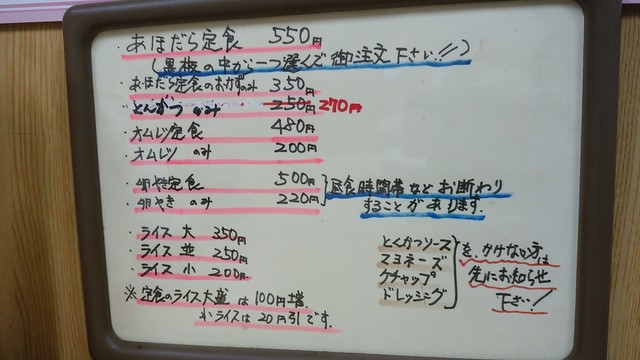 ・あほだら定食 550円
(黒板の中から一つ選んで御注文下さい!!)
・あほだら定食のおかずのみ 350円
・とんかつ のみ 250円 270円
・オムレツ定食 480円
・オムレツ のみ 200円
・卵やき定食 500円
・卵やき のみ 220円
昼食時間帯などお断わり
することがあります.
・ライス 大 350円
・ライス 並 250円
・ライス 小 200円
とんかつソース
マヨネーズ
ケチャップ
ドレッシング
を、かけない方は
先にお知らせ
下さい!
※定食のライス大盛は100円増.
小ライスは20円引です.